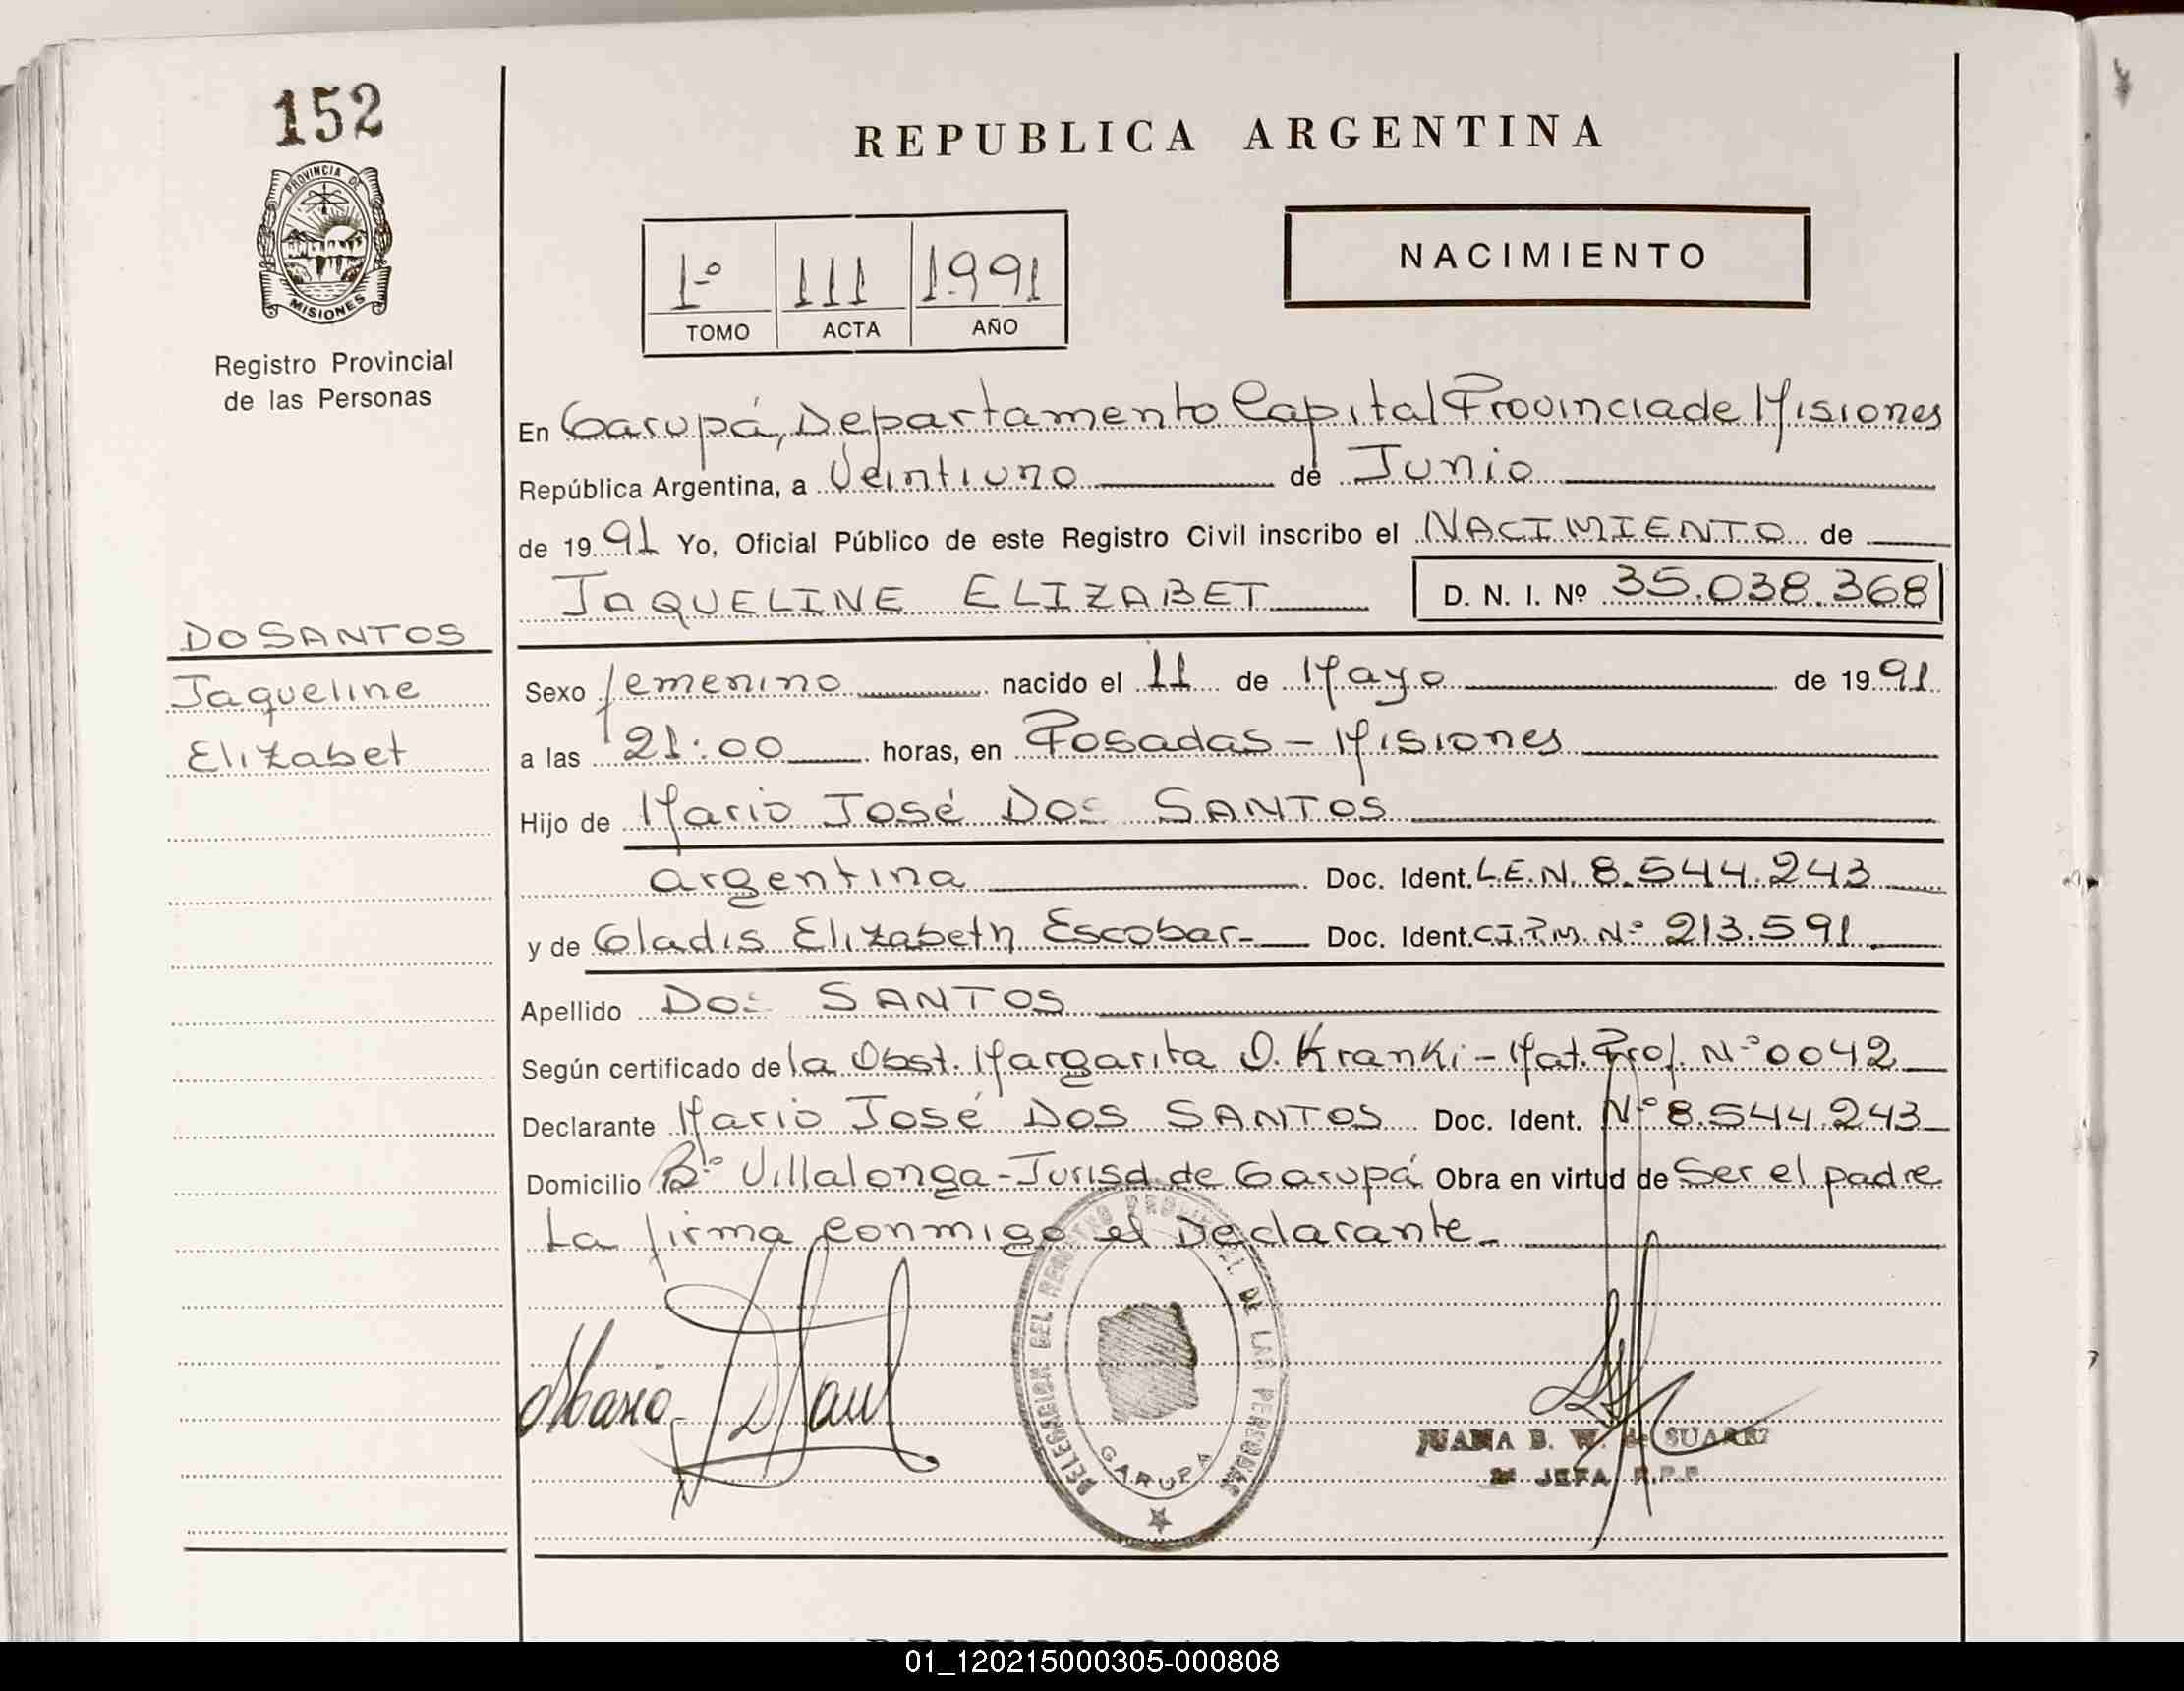 152
PROVINCIA DE
MISIONES
Registro Provincial
de las Personas
DO SANTOS
Jaqueline
Elizabet
REPUBLICA ARGENTINA
NACIMIENTO
1º 111 1991
TOMO ACTA AÑO
En Garupá, Departamento Capital Provincia de Misiones
República Argentina, a Veintiuno de Junio
de 1991 Yo, Oficial Público de este Registro Civil inscribo el NACIMIENTO de
JAQUELINE ELIZABET D. N. I. Nº 35.038.368
Sexo femenino nacido el 11 de Mayo de 1991
a las 21:00 horas, en Posadas - Misiones
Hijo de Mario José Dos SANTOS
argentina Doc. Ident. L.E.N. 8.544.243
y de Gladis Elizabeth Escobar- Doc. Ident. C.I.P.M. Nº 213.591
Apellido Dos SANTOS
Según certificado de la Obst. Margarita O. Kranki - Mat. Prof. Nº 0042
Declarante Mario José DOS SANTOS Doc. Ident. Nº 8.544.243
Domicilio Bº Villalonga - Jurisd. de Garupá Obra en virtud de Ser el padre
La firma conmigo el Declarante.
Mario
DELEGACION DEL REGISTRO PROVINCIAL DE LAS PERSONAS
GARUPA
JUANA B. W. de SUAREZ
JEFA R.P.P.
01_120215000305-000808